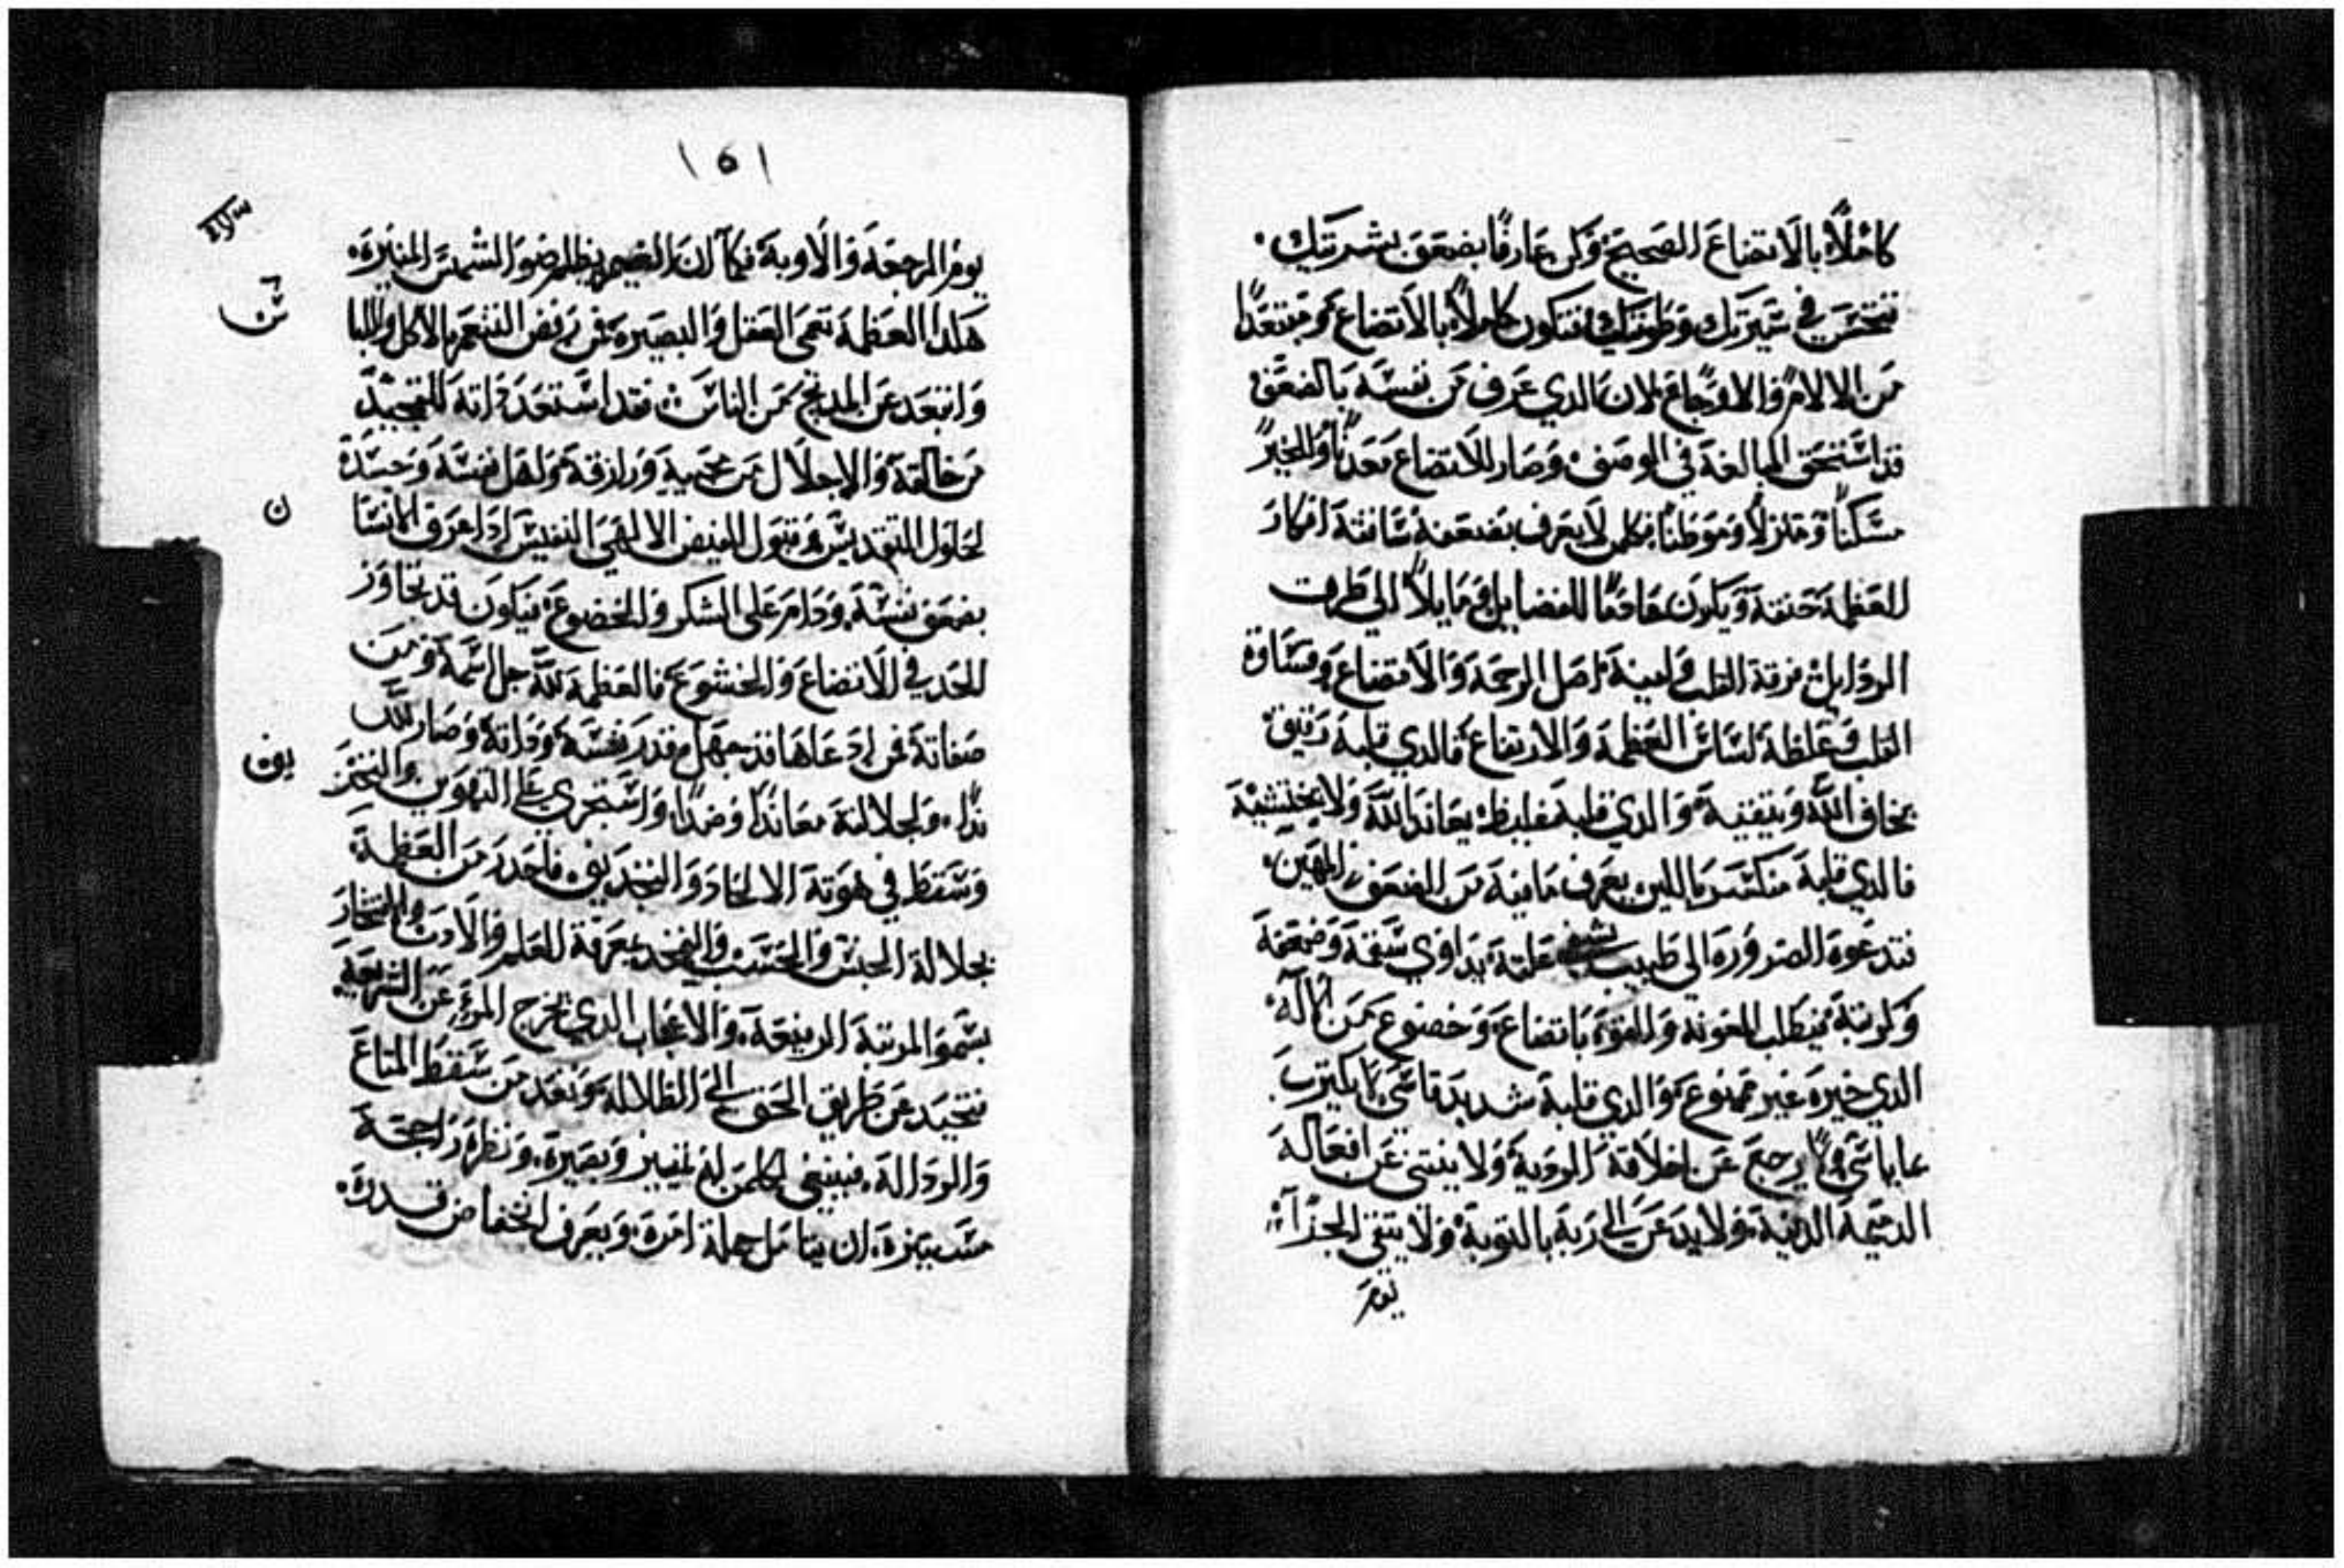 كاملاً بالاتضاع الصحيح وكن عارفًا بضعف بشريتك.
في سيرتك وطويتك لتكون كاملاً بالاتضاع مبتعدًا
من الالام والاوجاع لان الدي عرف من نفسه بالضعف
قد استحق المبالغة في الوصف وصار للاتضاع معدنًا وللخير
مسكنًا ومنزلاً وموطنًا فكلمن لا يعرف بضعفه سافته افكار
العظمة حتفه ويكون عادمًا للفضايل ومايلاً الى طرف
الردايل رقة القلب ولينه اصل الرحمة والاتضاع وقساوة
القلب وغلظه اساس العظمة والارتفاع فالدي قلبه رقيق
يخاف الله ويتقيه والدي قلبه غليظ يعاند الله ولا يختشيه
فالدي قلبه منكسر باللين يعرف مافيه من الضعف المهين
فتدعوه الضروره الى طبيب يشفي علته يداوي سقمه وضعفه
وكربته فيطلب المعونه والقوة باتضاع وخضوع من الاله
الدي خيره غير ممنوع والدي قلبه شديد قاسي لا يكترت
بما ياتي ولا يرجع عن اخلاقه الرديه ولا ينتني عن افعاله
الدميمة الدنيه ولا يدعن الى ربه بالتوبة ولا يتقي الجزاء
يوم
١٥١
يوم الرجعة والاوبة فكما ان الغيم يظلم ضوء الشمس المنيرة
هكدا العظمة تعمي العقل والبصيره فمن رفض التنعم بالاكل واللبا
س
وابتعد عن المديح من الناس فقد استعد داته للتمجيد
من خالقه والاجلال من محييه ورازقه واهل نفسه وجسده
لحلول التقديس وقبول الفيض الالهي النفيس ادا عرف الانسا
ن
بضعف نفسه ودام على الشكر والخضوع فيكون قد تجاوز
الحد في الاتضاع والخشوع فالعظمة لله جل اسمه ومن
صفاته فمن ادعاها قد جهل قدر نفسه وداته وصار لله
ندًا ولجلالته معاندًا وضدًا واستجري على التهوين والتجر
يف
وسقط في هوتة الالحاد والتجديف فاحدر من العظمة
بجلالة الجنس والحسب والفخر بمعرفة العلم والادب والافتخار
بسمو المرتبة الرفيعة والاعجاب الدي يخرج المرء عن الشريعة
فتحيد عن طريق الحق الى الظلالة وتعد من سقط المتاع
والردالة فينبغي لكلمن له تمييز وبصيرة ونظرة راجحة
مستنيزة ان يتامل جملة امره ويعرف انخفاض قدره